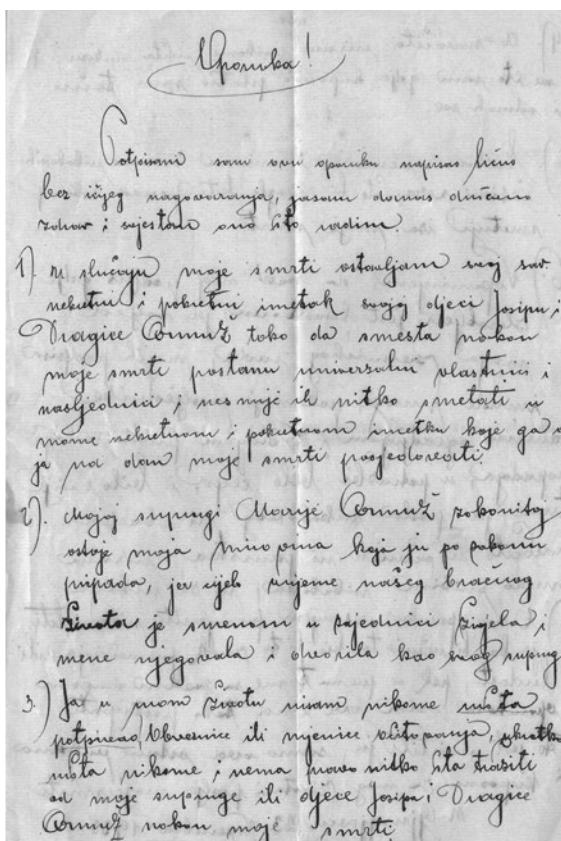 Oporuka!
Potpisani sam ovu oporuku napisao lično
bez ičijeg nagovaranja, jasam danas duševno
zdrav i svjestan ono što radim.
1). u slučaju moje smrti ostavljam svoj sav
nekretni i pokretni imetak svojoj djeci Josipu i
Dragice Cormuž tako da smesta nakon
moje smrti postanu univerzalni vlastnici i
nasljednici i nesmije ih nitko smetati u
mome nekretnom i pokretnom imetku koje ga
ja na dan moje smrti posjedovati.
2). Mojoj suprugi Marije Cormuž zakonitoj
ostaje moja mirovina koja ju po zakonu
pripada, jer cijelo vrijeme našeg bračnog
života je samnom u zajednici živjela i
mene njegovala i dvorila kao svog suprug
3.) Ja u mom životu nisam nikome ništa
potpisao, obveznice ili mjenice očitovanja, ukratko
ništa nikome i nema pravo nitko šta tražiti
od moje supruge ili djece Josipa i Dragice
Cormuž nakon moje smrti.